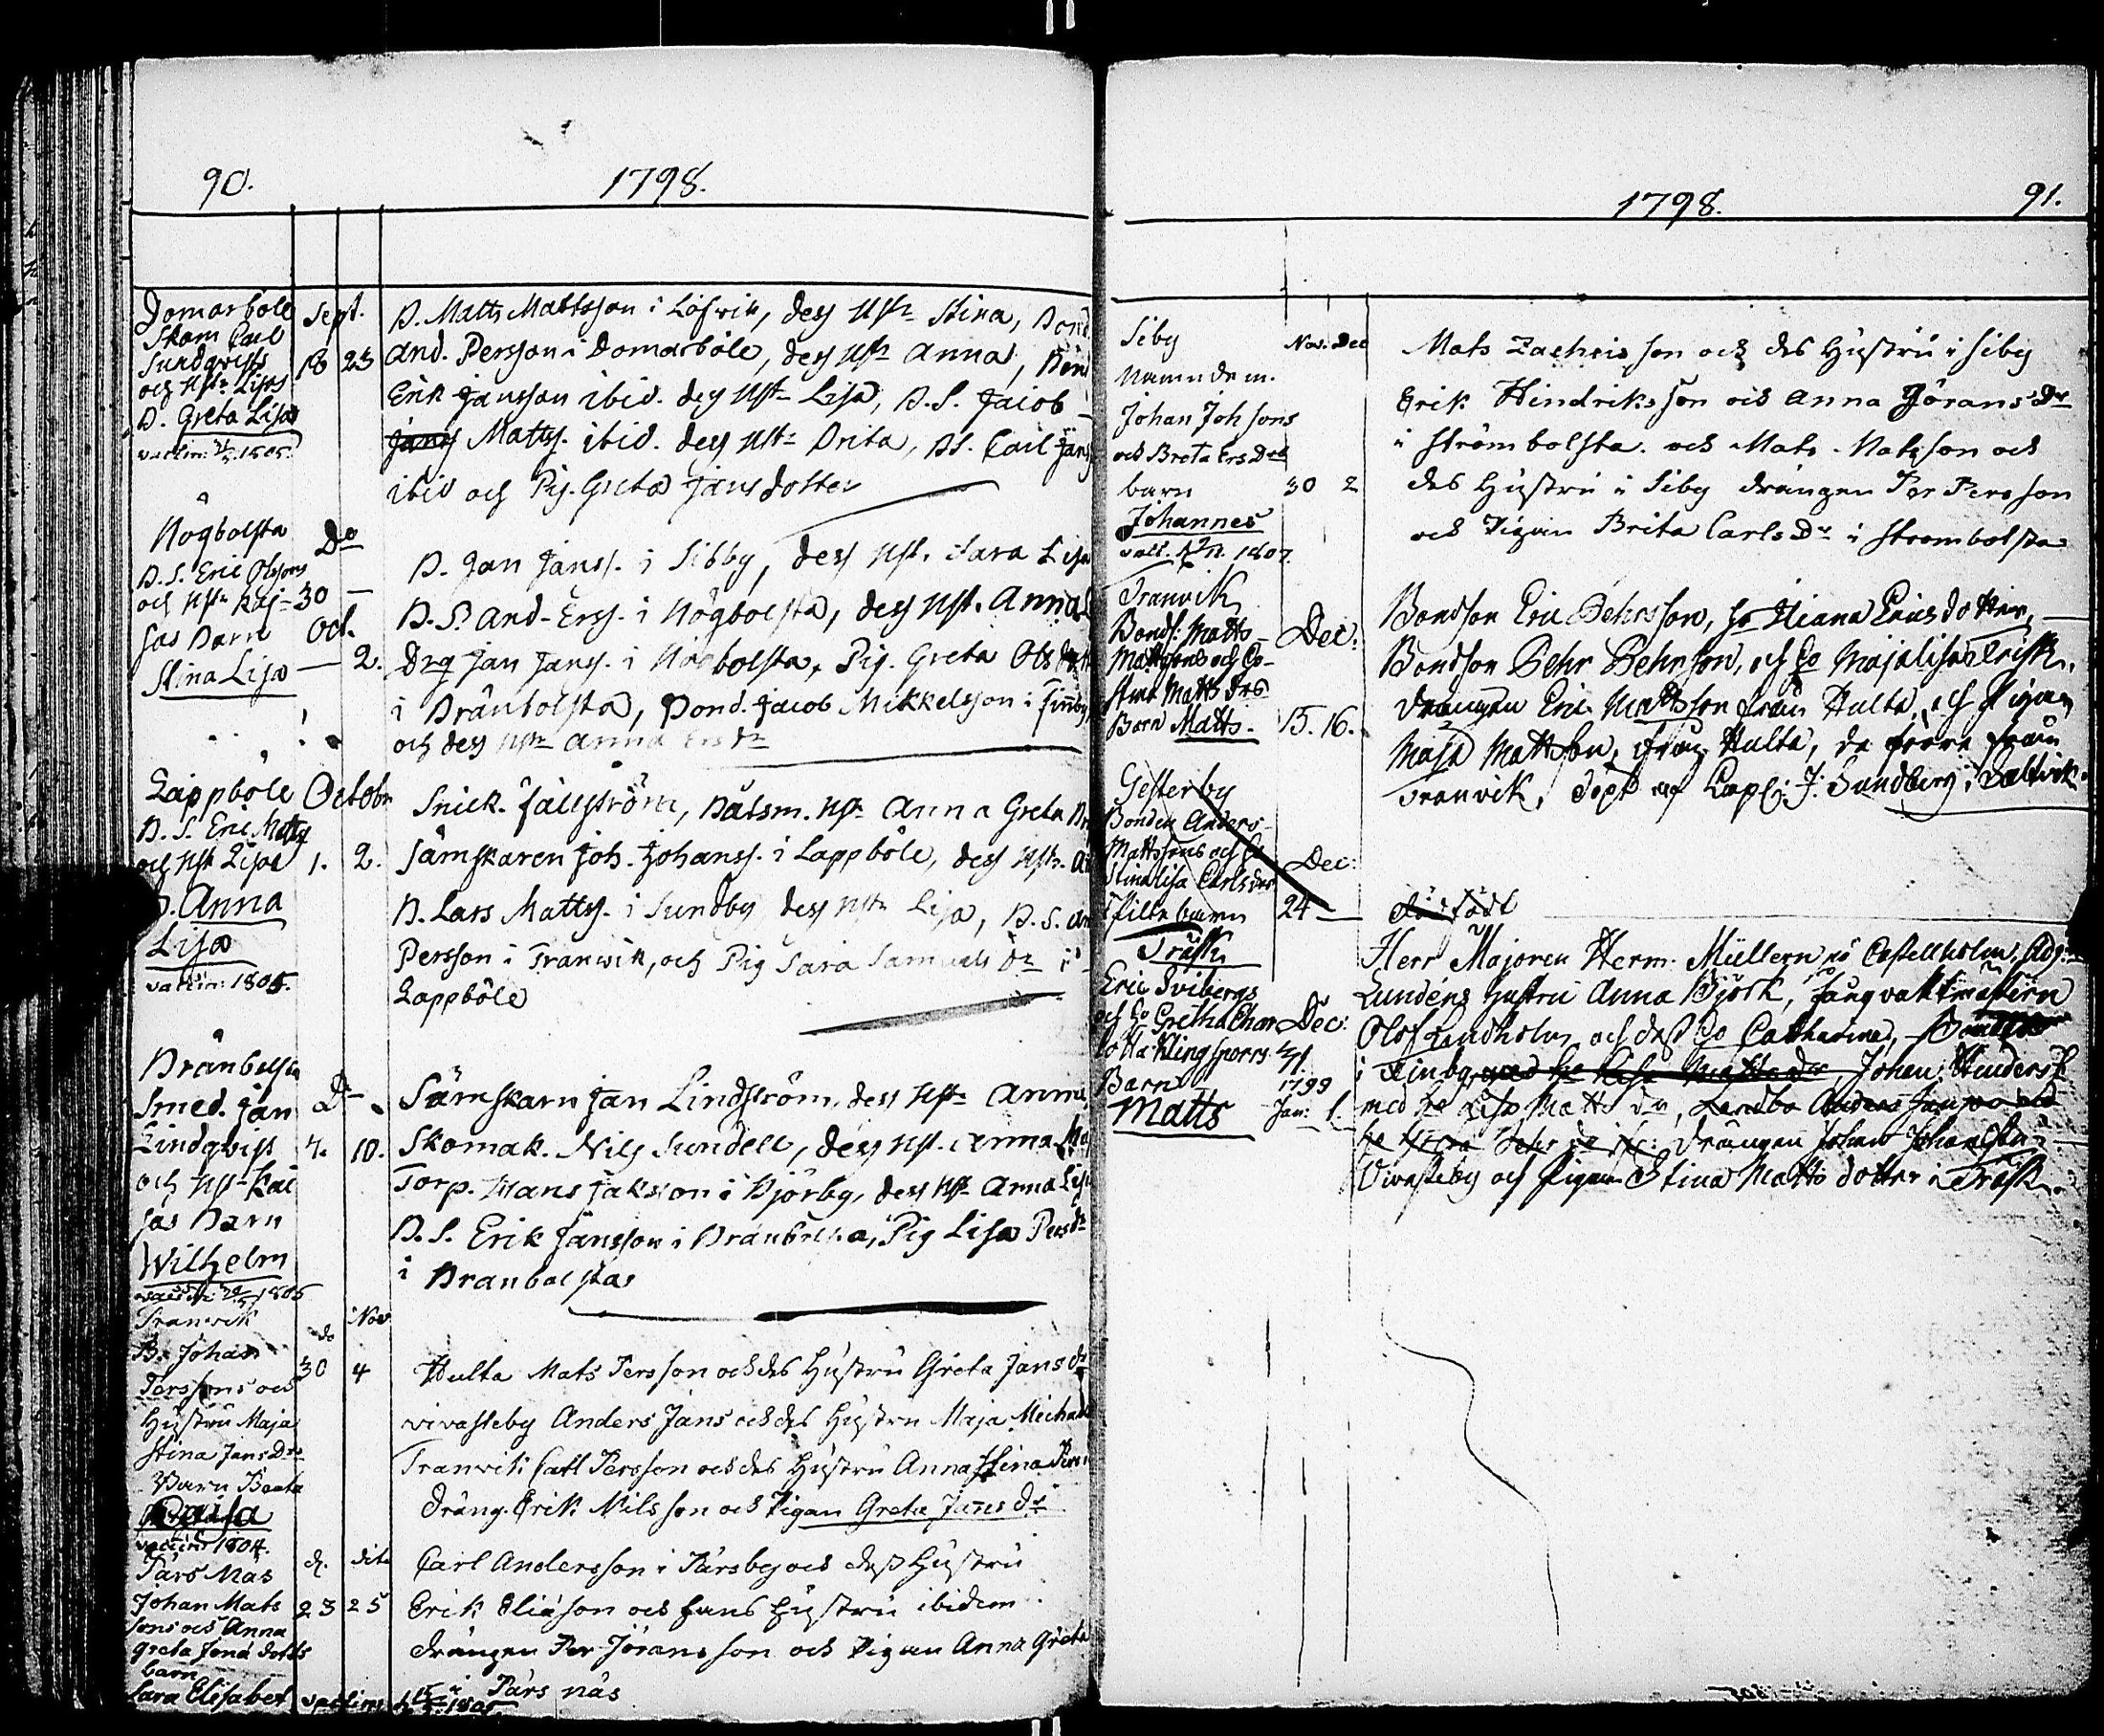 90.
1798.
Domarböle
Skom Carl
Sundqvists
och Hstr Lisas
D. Greta Lisa
vaccin: 1805.
Sept.
18 23
B. Matts Mattsson i Löfwik, dess Hstr Stina, Bond
And. Persson i Domarböle, dess Hstr Anna, Bond
Erik Jansson ibid. dess Hstr Lisa, B.S. Jacob
Janss Mattss. ibid. dess Hstr Brita, BS. Carl Janss
ibid och Pig. Greta Jansdotter
Högbolsta
B.S. Eric Olssons
och Hstr Kaj-
sas Barn
Stina Lisa
Do
30 —
Oct.
— 2.
B. Jan Janss. i Sibby, dess Hst. Sara Lisa
B.S. And. Erss. i Högbolsta, dess Hst. Anna
Drg Jan Janss. i Högbolsta, Pig. Greta Ols dott
i Bränbolsta, Bond. Jacob Mikkelsson i Finby,
och dess Hstr Anna Ers dr
Lappböle
B.S. Eric Matts
och Hstr Lisas
D. Anna
Lisa
vaccin: 1805.
Octobr
1. 2.
Snick. Fällström, Båtsm. Hstr Anna Greta
Sämskaren Joh. Johanss. i Lappböle, dess Hstr.
B. Lars Mattss. i Sundby dess Hstr Lisa, B.S. An
Persson i Tranwik, och Pig Sara Samuels dr i
Lappböle
Bränbolsta
Smed. Jan
Lindqvist
och Hstr Kai
sas Barn
Wilhelm
1805
Do
7. 10.
Sämskarn Jan Lindström, dess Hstr Anna
Skomak. Nils Sundell, dess Hst. Anna Ma
Torp. Hans Jakson i Björby, dess Hst Anna Lisa
B.S. Erik Jansson i Bränbolsta, Pig Lisa Persdr
i Branbolsta
Tranvik
B. Johan
Perssons och
Hustru Maja
Stina Jans Drs
Barn Beata
Caisa
vaccin 1804.
do Nov
30 4
Hulta Mats Persson och des Hustru Greta Jans dr
vivasteby Anders Jans och des Hustru Maja Michael
Tranvik Carl Persson och des Hustru Anna Stina Pers
dräng. Erik Nilsson och Pigan Greta Jans dr
Pärs Näs
Johan Mats
sons och Anna
Greta Jona dotts
barn
Sara Elisabet
d. dito
23 25
vaccin 1805
Carl Andersson i Pärsby och dess Hustru
Erik Eliäson och hans Hustru ibidem
drängen Per Jöransson och Pigan Anna Greta
i Pärs näs
1798.
91.
Siby
Nämndem.
Johan Joh sons
och Breta Ers Drs
barn
Johannes
vacc. 1807.
Nov. Dec
30 2
Mats Zachrisson och des Hustru i Siby
Erik Hindriksson och Anna Görans Dr
i Strömbolsta. och Mats Matsson och
des Hustru i Siby drängen Per Persson
och Pigan Brita Carls Dr i Strömbolsta
Tranvik
Bonds: Matts
Mattssons och Ch-
stine Matts drs
Barn Matts.
Dec:
15. 16.
Bondson Eric Pehrsson, ho Stiana Ericsdotter,
Bondson Pehr Pehrsson, och ho Majalisa i Träsk.
drängen Eric Mattsson från Hulta, och Pigan
Maja Mattson, från Hulta, de förra från
Tranvik, döpt af Capl: J: Sundberg i Saltvik.
Gesterby
Bonden Anders
Mattssons och ho
Stinalisa Carls drs
barn
Dec:
24 —
död född
Träsk
Eric Tvibergs
och ho Gretha Char
lotta Klingsporrs
Barn
Matts
Dec:
31
1799
Jan: 1.
Herr Majoren Herm. Müllern på Castellholm, Adj:
Lundéns Hustru Anna Björk, fångvaktmästern
Olof Landholm och dess ho Catharina, Bonden
i Finby med ho Lisa Matts dr Johan Hinders
med ho Lisa Matts dr, Landbo Anders Janson och
drängen Johan Johansson
Vivasteby och Pigan Stina Matts dotter i Träsk.